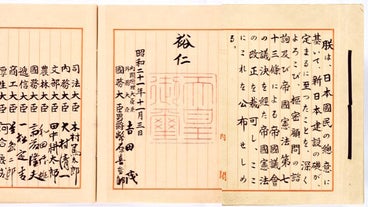 朕は、日本國民の總意に
基いて、新日本建設の礎が、
定まるに至つたことを、深く
よろこび、樞密顧問の諮
詢及び帝國憲法第七
十三條による帝國議會
の議決を経た帝國憲法
の改正を裁可し、ここ
にこれを公布せしめ
内閣
裕仁
天皇御璽
昭和二十一年十一月三日
内閣總理大臣兼
外務大臣 吉田茂
國務大臣 男爵 幣原喜重郎
司法大臣 木村篤太郎
内務大臣 大村清一
文部大臣 田中耕太郎
農林大臣 和田博雄
國務大臣 斎藤隆夫
逓信大臣 一松定吉
商工大臣 星島二郎
厚生大臣 河合良成